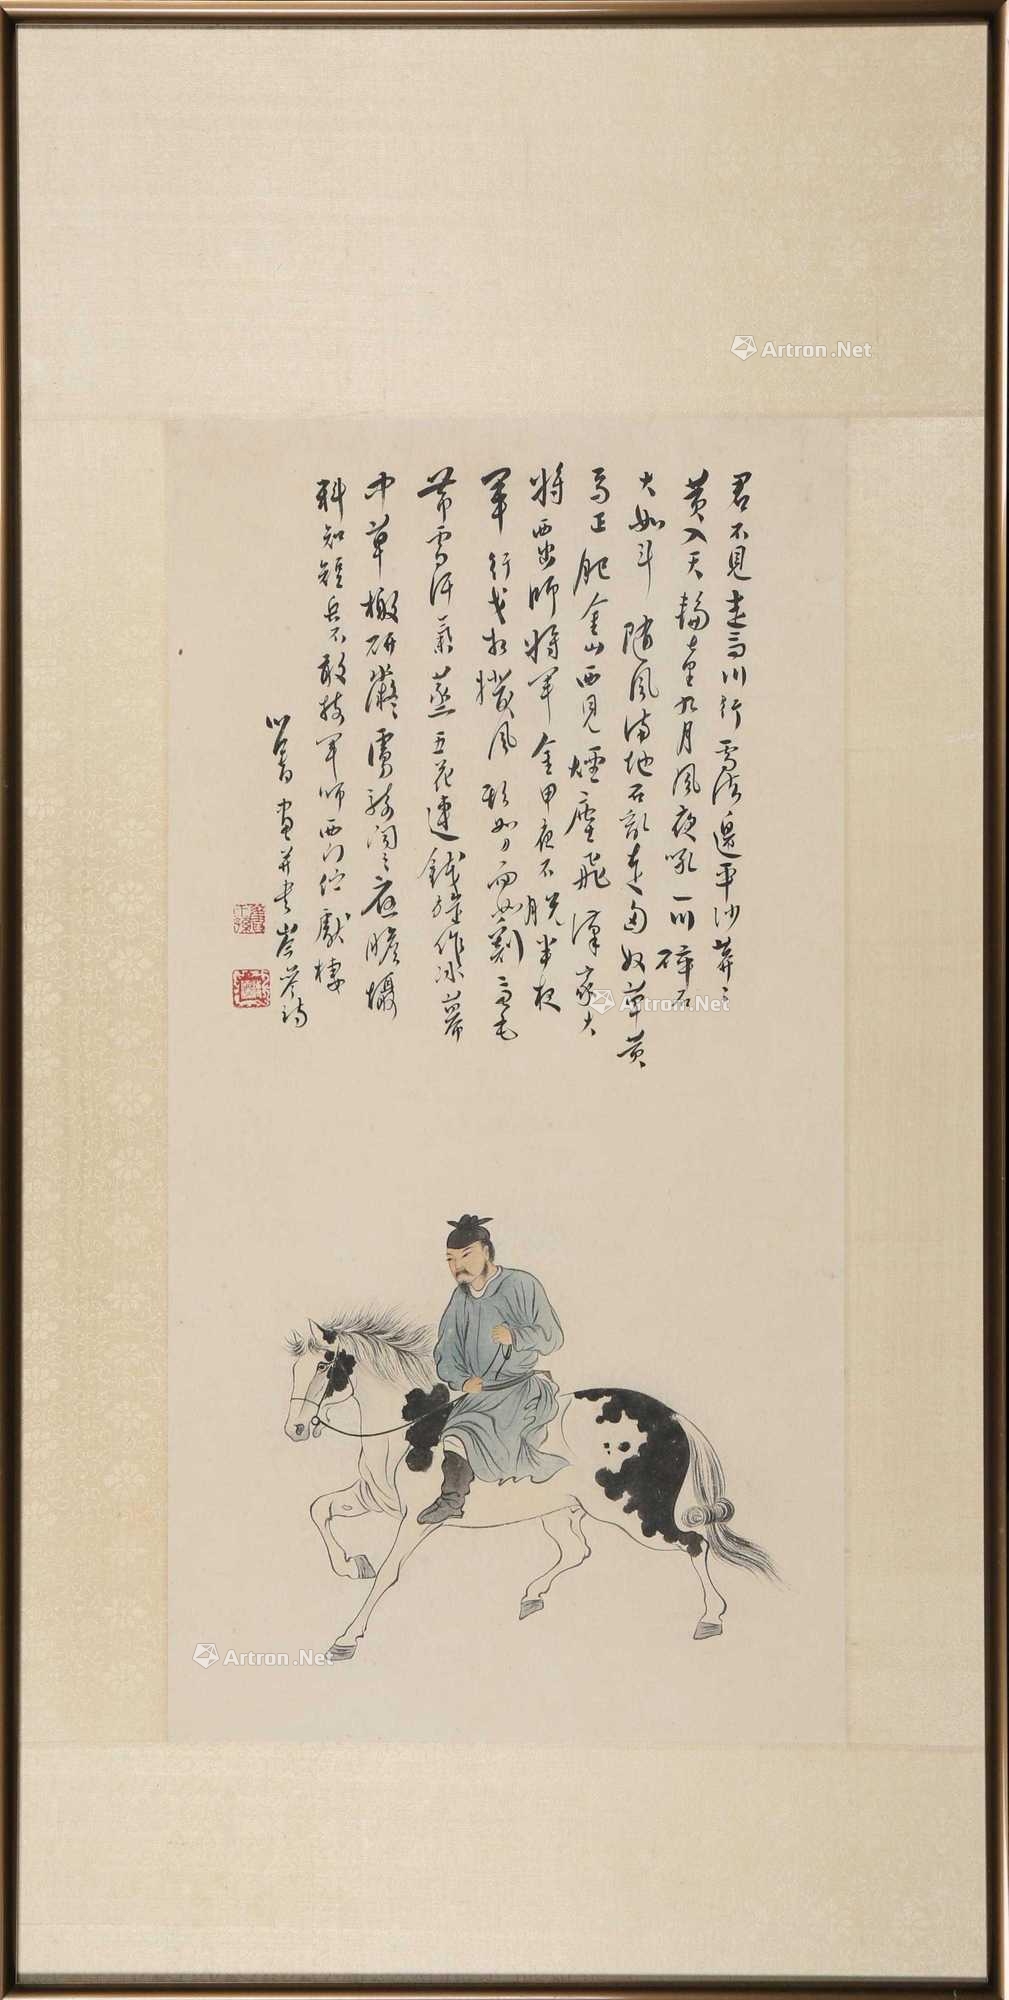 君不見走馬川行雪海邊平沙莽々
黃入天輪臺九月風夜吼一川碎石
大如斗隨風滿地石亂走匈奴草黃
馬正肥金山西見煙塵飛漢家大
將西出師將軍金甲夜不脫半夜
軍行戈相撥風頭如刀面如割馬毛
帶雪汗氣蒸五花連錢旋作冰幕
中草檄硯水凝虜騎聞之應膽懾
料知短兵不敢接軍師西門佇獻捷
心畬畫并書岑參詩
Artron.Net
Artron.Net
Artron.Net